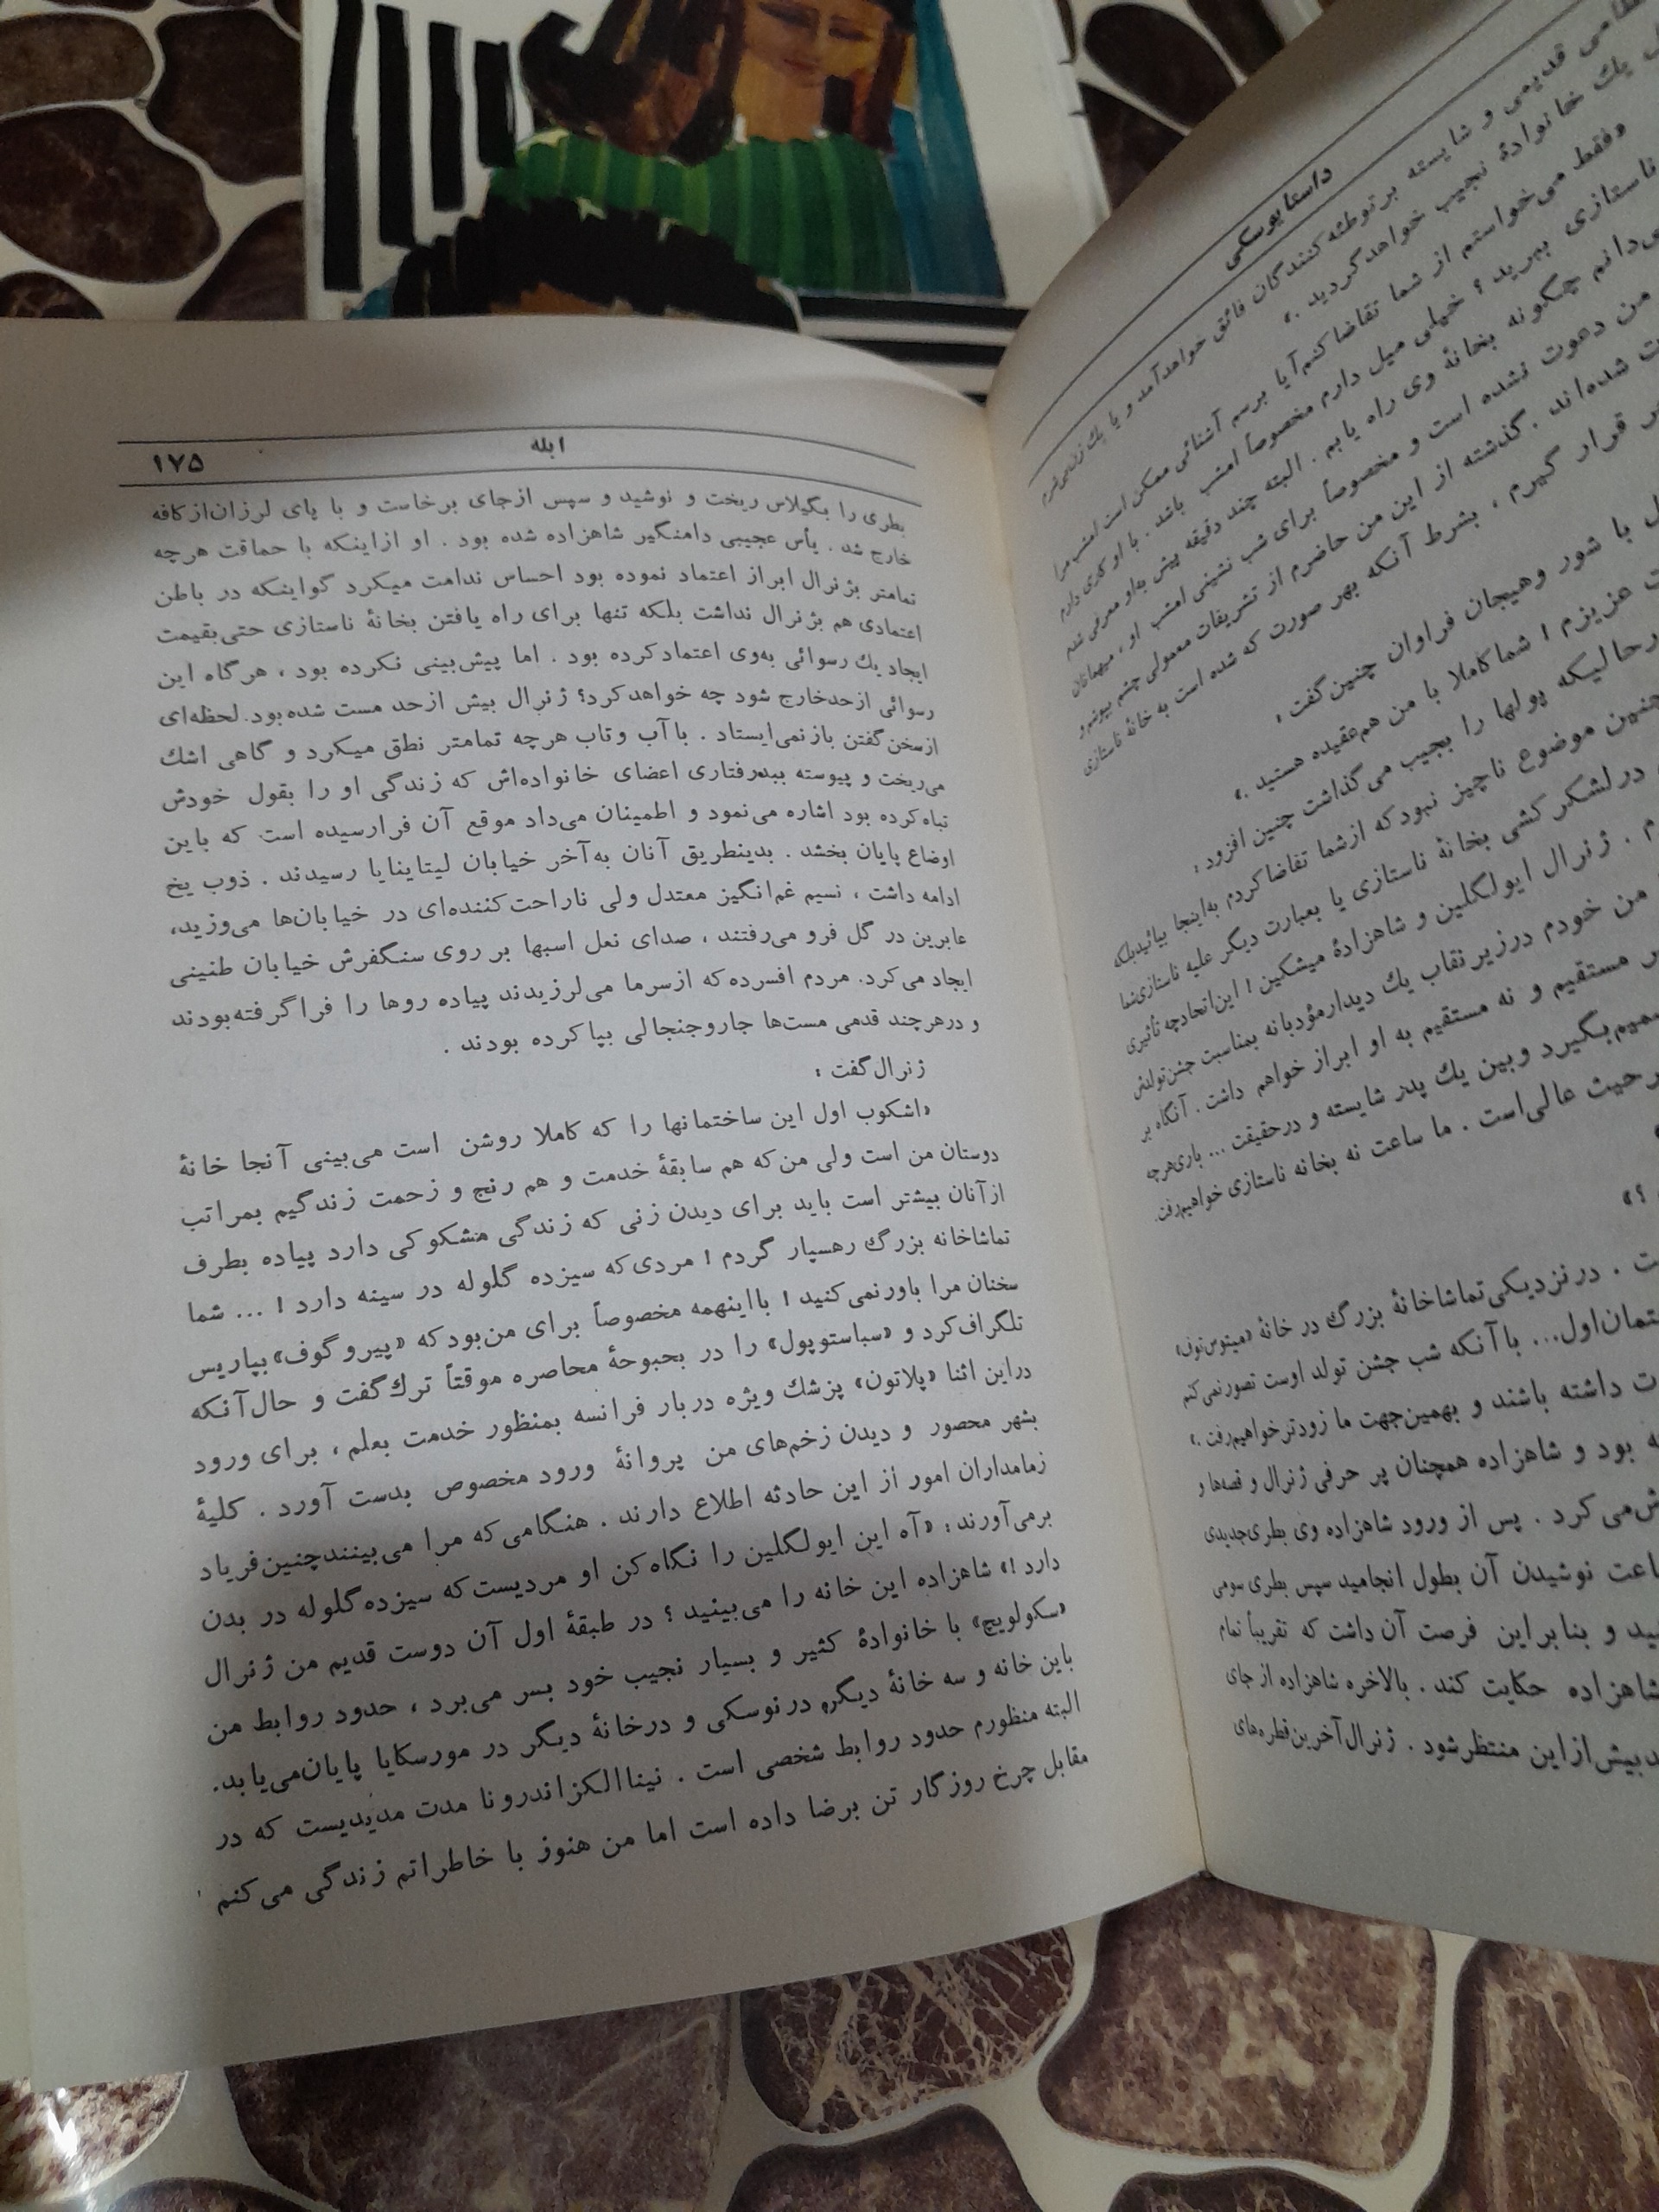 داستایوسکی
قدیمی و شایسته برتوطئه کنندگان فائق خواهدآمد و یا یک زن بی‌شرم
یک خانوادهٔ نجیب خواهدگردید .»
وفقط می‌خواستم از شما تقاضا کنم آیا برسم آشنائی ممکن است امشب مرا
ناستازی ببرید ؟ خیلی میل دارم مخصوصاً امشب باشد . با او کاری دارم
چگونه بخانهٔ وی راه یابم . البته چند دقیقه پیش به‌او معرفی شدم
من دعوت نشده است و مخصوصاً برای شب نشینی امشب او ، میهمانان
شده‌اند . گذشته از این من حاضرم از تشریفات معمولی چشم بپوشم و
قرار گیرم ، بشرط آنکه بهر صورت که شده است به خانهٔ ناستازی
با شور وهیجان فراوان چنین گفت :
عزیزم ! شما کاملا با من هم‌عقیده هستید .»
رحالیکه پولها را بجیب می‌گذاشت چنین افزود :
موضوع ناچیز نبود که ازشما تقاضا کردم به‌اینجا بیائیدبلکه
درلشکر کشی بخانهٔ ناستازی یا بعبارت دیگر علیه ناستازی‌شما
م . ژنرال ایولگلین و شاهزادهٔ میشکین ! این‌اتحادچه تأثیری
من خودم درزیر نقاب یک دیدارمؤدبانه بمناسبت جشن‌تولدش
مستقیم و نه مستقیم به او ابراز خواهم داشت . آنگاه بر
بگیرد وبین یک پدر شایسته و درحقیقت ... باری‌هرچه
حیث عالی‌است . ما ساعت نه بخانه ناستازی خواهیم‌رفت.
؟»
ت . درنزدیکی تماشاخانهٔ بزرگ در خانهٔ «میتوس‌توف»
تمان‌اول... باآنکه شب جشن تولد اوست تصورنمی‌کنم
ت داشته باشند و بهمین‌جهت ما زودتر خواهیم‌رفت .»
بود و شاهزاده همچنان پر حرفی ژنرال و قصه‌ها و
ش‌می کرد . پس از ورود شاهزاده وی بطری‌جدیدی
اعت نوشیدن آن بطول انجامید سپس بطری سومی
ید و بنابراین فرصت آن داشت که تقریباً تمام
شاهزاده حکایت کند . بالاخره شاهزاده از جای
دبیش‌ازاین منتظرشود . ژنرال‌آخرین‌قطره‌های
ابله
۱۷۵
بطری را بگیلاس ریخت و نوشید و سپس ازجای برخاست و با پای لرزان‌ازکافه
خارج شد . یأس عجیبی دامنگیر شاهزاده شده بود . او ازاینکه با حماقت هرچه
تمامتر بژنرال ابراز اعتماد نموده بود احساس ندامت میکرد گواینکه در باطن
اعتمادی هم بژنرال نداشت بلکه تنها برای راه یافتن بخانهٔ ناستازی حتی‌بقیمت
ایجاد یک رسوائی به‌وی اعتماد کرده بود . اما پیش‌بینی نکرده بود ، هرگاه این
رسوائی ازحدخارج شود چه خواهدکرد؟ ژنرال بیش ازحد مست شده بود. لحظه‌ای
ازسخن گفتن بازنمی‌ایستاد . باآب وتاب هرچه تمامتر نطق میکرد و گاهی اشک
می‌ریخت و پیوسته ببدرفتاری اعضای خانواده‌اش که زندگی او را بقول خودش
تباه کرده بود اشاره می‌نمود و اطمینان می‌داد موقع آن فرارسیده است که باین
اوضاع پایان بخشد . بدینطریق آنان به‌آخر خیابان لیتاینایا رسیدند . ذوب یخ
ادامه داشت ، نسیم غم‌انگیز معتدل ولی ناراحت‌کننده‌ای در خیابان‌ها می‌وزید،
عابرین در گل فرو می‌رفتند ، صدای نعل اسبها بر روی سنگفرش خیابان طنینی
ایجاد می‌کرد. مردم افسرده که ازسرما می‌لرزیدند پیاده روها را فراگرفته‌بودند
و درهرچند قدمی مست‌ها جاروجنجالی بپا کرده بودند .
ژنرال‌گفت :
«اشکوب اول این ساختمانها را که کاملا روشن است می‌بینی آنجا خانهٔ
دوستان من است ولی من‌که هم سابقهٔ خدمت و هم رنج و زحمت زندگیم بمراتب
ازآنان بیشتر است باید برای دیدن زنی که زندگی مشکوکی دارد پیاده بطرف
تماشاخانه بزرگ رهسپار گردم ! مردی‌که سیزده گلوله در سینه دارد ! ... شما
سخنان مرا باورنمی‌کنید ! بااینهمه مخصوصاً برای من‌بودکه «پیروگوف» بپاریس
تلگراف‌کرد و «سباستوپول» را در بحبوحهٔ محاصره موقتاً ترك گفت و حال‌آنکه
دراین اثنا «پلاتون» پزشك ویژه دربار فرانسه بمنظور خدمت بعلم ، برای ورود
بشهر محصور و دیدن زخم‌های من پروانهٔ ورود مخصوص بدست آورد . کلیهٔ
زمامداران امور از این حادثه اطلاع دارند . هنگامی‌که مرا می‌بینندچنین‌فریاد
برمی‌آورند: «آه این ایولگلین را نگاه‌کن او مردیست‌که سیزده‌گلوله در بدن
دارد !» شاهزاده این خانه را می‌بینید ؟ در طبقهٔ اول آن دوست قدیم من ژنرال
«سکولویچ» با خانوادهٔ کثیر و بسیار نجیب خود بسر می‌برد ، حدود روابط من
باین خانه و سه خانهٔ دیگر درنوسکی و درخانهٔ دیگر در مورسکایا پایان‌می‌یابد.
البته منظورم حدود روابط شخصی است . نیناالکزاندرونا مدت مدیدیست که در
مقابل چرخ روزگار تن برضا داده است اما من هنوز با خاطراتم زندگی می‌کنم